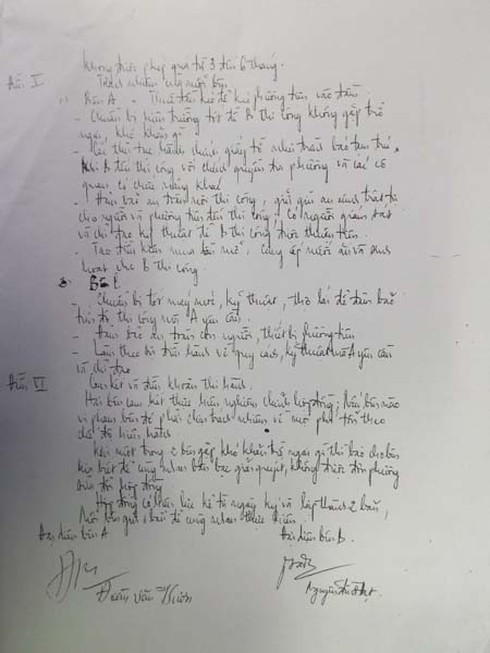 không được phép quá từ 3 đến 6 tháng.
Điều V Trách nhiệm của mỗi bên
1) Bên A - Thuê
- Chuẩn bị hiện trường tốt để B thi công không gặp trở
ngại, khó khăn gì
- Các thủ tục hành chính, giấy tờ
khi B đến thi công với chính quyền địa phương và các cơ
quan có chức năng khác
- Đảm bảo an toàn nơi thi công, giữ gìn an ninh trật tự
cho người và phương tiện đến thi công. Có người giám sát
và chỉ đạo kỹ thuật để B thi công được thuận tiện.
- Tạo điều kiện cung cấp nước ăn và sinh
hoạt cho B thi công
2. Bên B
- Chuẩn bị tốt máy móc, kỹ thuật, thợ lái để đảm bảo
tiến độ thi công mà A yêu cầu.
- Đảm bảo an toàn con người, thiết bị phương tiện
- Làm theo sự điều hành về quy cách, kỹ thuật mà A yêu cầu
và chỉ đạo
Điều VI Cam kết và điều khoản thi hành.
Hai bên cam kết thực hiện nghiêm chỉnh hợp đồng; Nếu bên nào
vi phạm bên đó phải chịu trách nhiệm về mọi phí tổn theo
chế độ hiện hành
Khi một trong 2 bên gặp khó khăn trở ngại gì thì báo cho bên
kia biết để cùng nhau bàn bạc giải quyết, không được đơn phương
sửa đổi hợp đồng
Hợp đồng có hiệu lực kể từ ngày ký và lập thành 2 bản,
Mỗi bên giữ 1 bản để cùng nhau thực hiện.
Đại diện bên A Đại diện bên B.
Văn Nguyễn